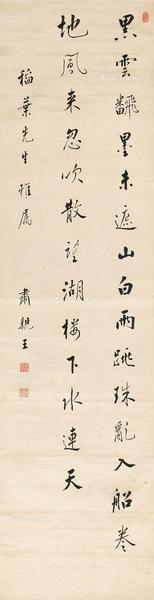 黒雲飜墨未遮山白雨跳珠亂入船卷
地風来忽吹散望湖樓下水連天
稲葉先生雅属
肅親王